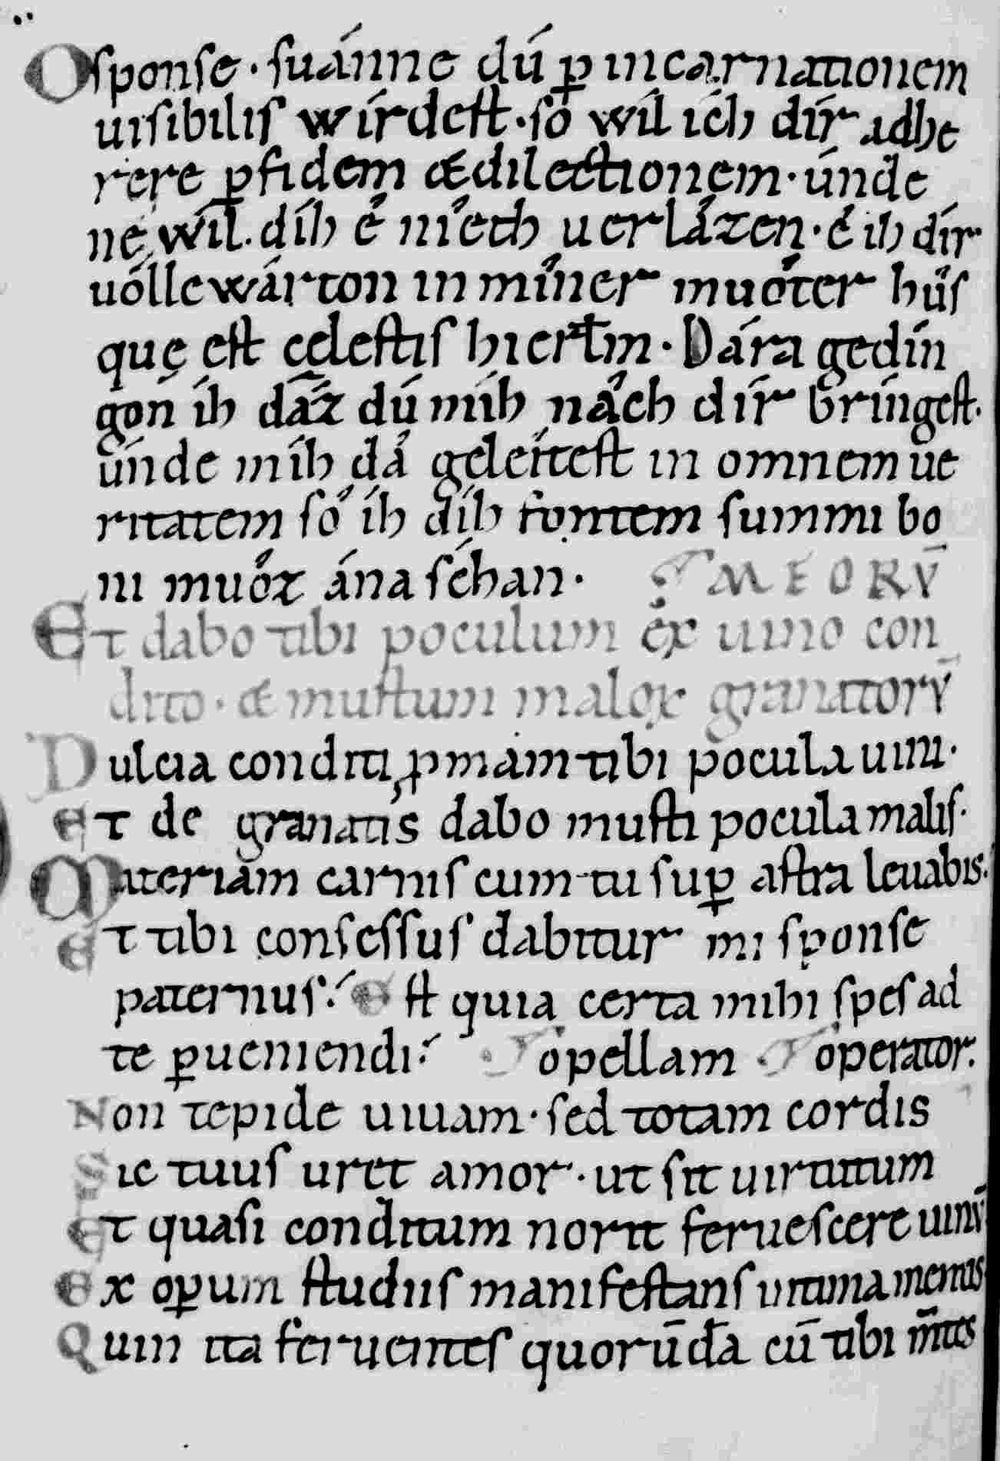 O sponse · suánne dú ꝑ incarnationem
uisibilis wírdest · so wíl ich dír adhe
rere ꝑ fidem & dilectionem · únde
ne wíl díh é níech uerlâzen · é ih dír
uólle wárton in míner muôter hûs
quę est cęlestis hierl̄m · Dára gedín
gon íh daz dú míh nâch dír bríngest ·
únde míh dâ geleítest in omnem ue
ritatem sô íh díh fontem summi bo
ni muôz ána séhan · MEORV̄
Et dabo tibi poculum ex uino con
dito · & mustum maloꝝ granatorv̄
Dulcia conditi ꝓmam tibi pocula uini ·
Et de granatis dabo musti pocula malis ·
Materiam carnis cum tu suꝑ astra leuabis ·
Et tibi consessus dabitur mi sponse
paternus · Est quia certa mihi spes ad
te ꝑueniendi · opellam operator.
Non tepide uiuam · sed totam cordis
Sic tuus uret amor · ut sit uirtutum
Et quasi conditum norit feruescere uinū
Ex oꝑum studiis manifestans intima mentis
Quin ita feruentes quorūdā cū tibi m̄tes